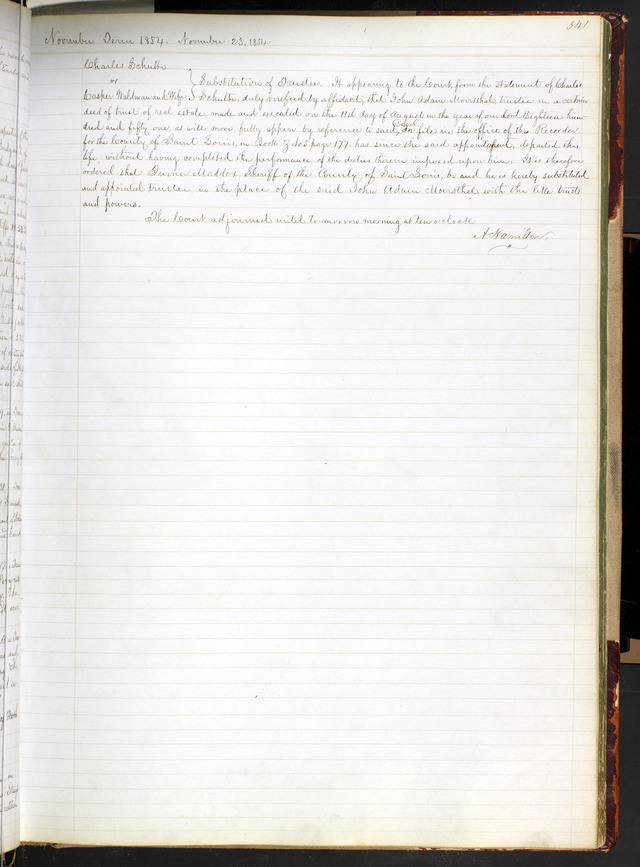 341
November Term 1854. November 23, 1854.
Charles Schutth
vs
Casper Waldman and Wife
Substitution of Trustee. It appearing to the Court, from the statement of Charles
Schutth, duly verified by affidavit, that John Adam Moersthal trustee in a certain
deed of trust of real estate, made and executed on the 11th day of August in the year of our Lord Eighteen hun
dred and fifty one, as will more fully appear by reference to said Deed, on file in the office of the Recorder
for the County of Saint Louis, in Book Z No 5 page 177. has since the said appointment, departed this
life, without having completed the performance of the duties therein imposed upon him. It is therefore
ordered that Turner Maddox, Sheriff of the County of Saint Louis, be and he is hereby substituted
and appointed trustee, in the place of the said John Adam Moersthal, with the like trusts
and powers.
The Court adjourned until to morrow morning at ten o'clock
A. Hamilton.